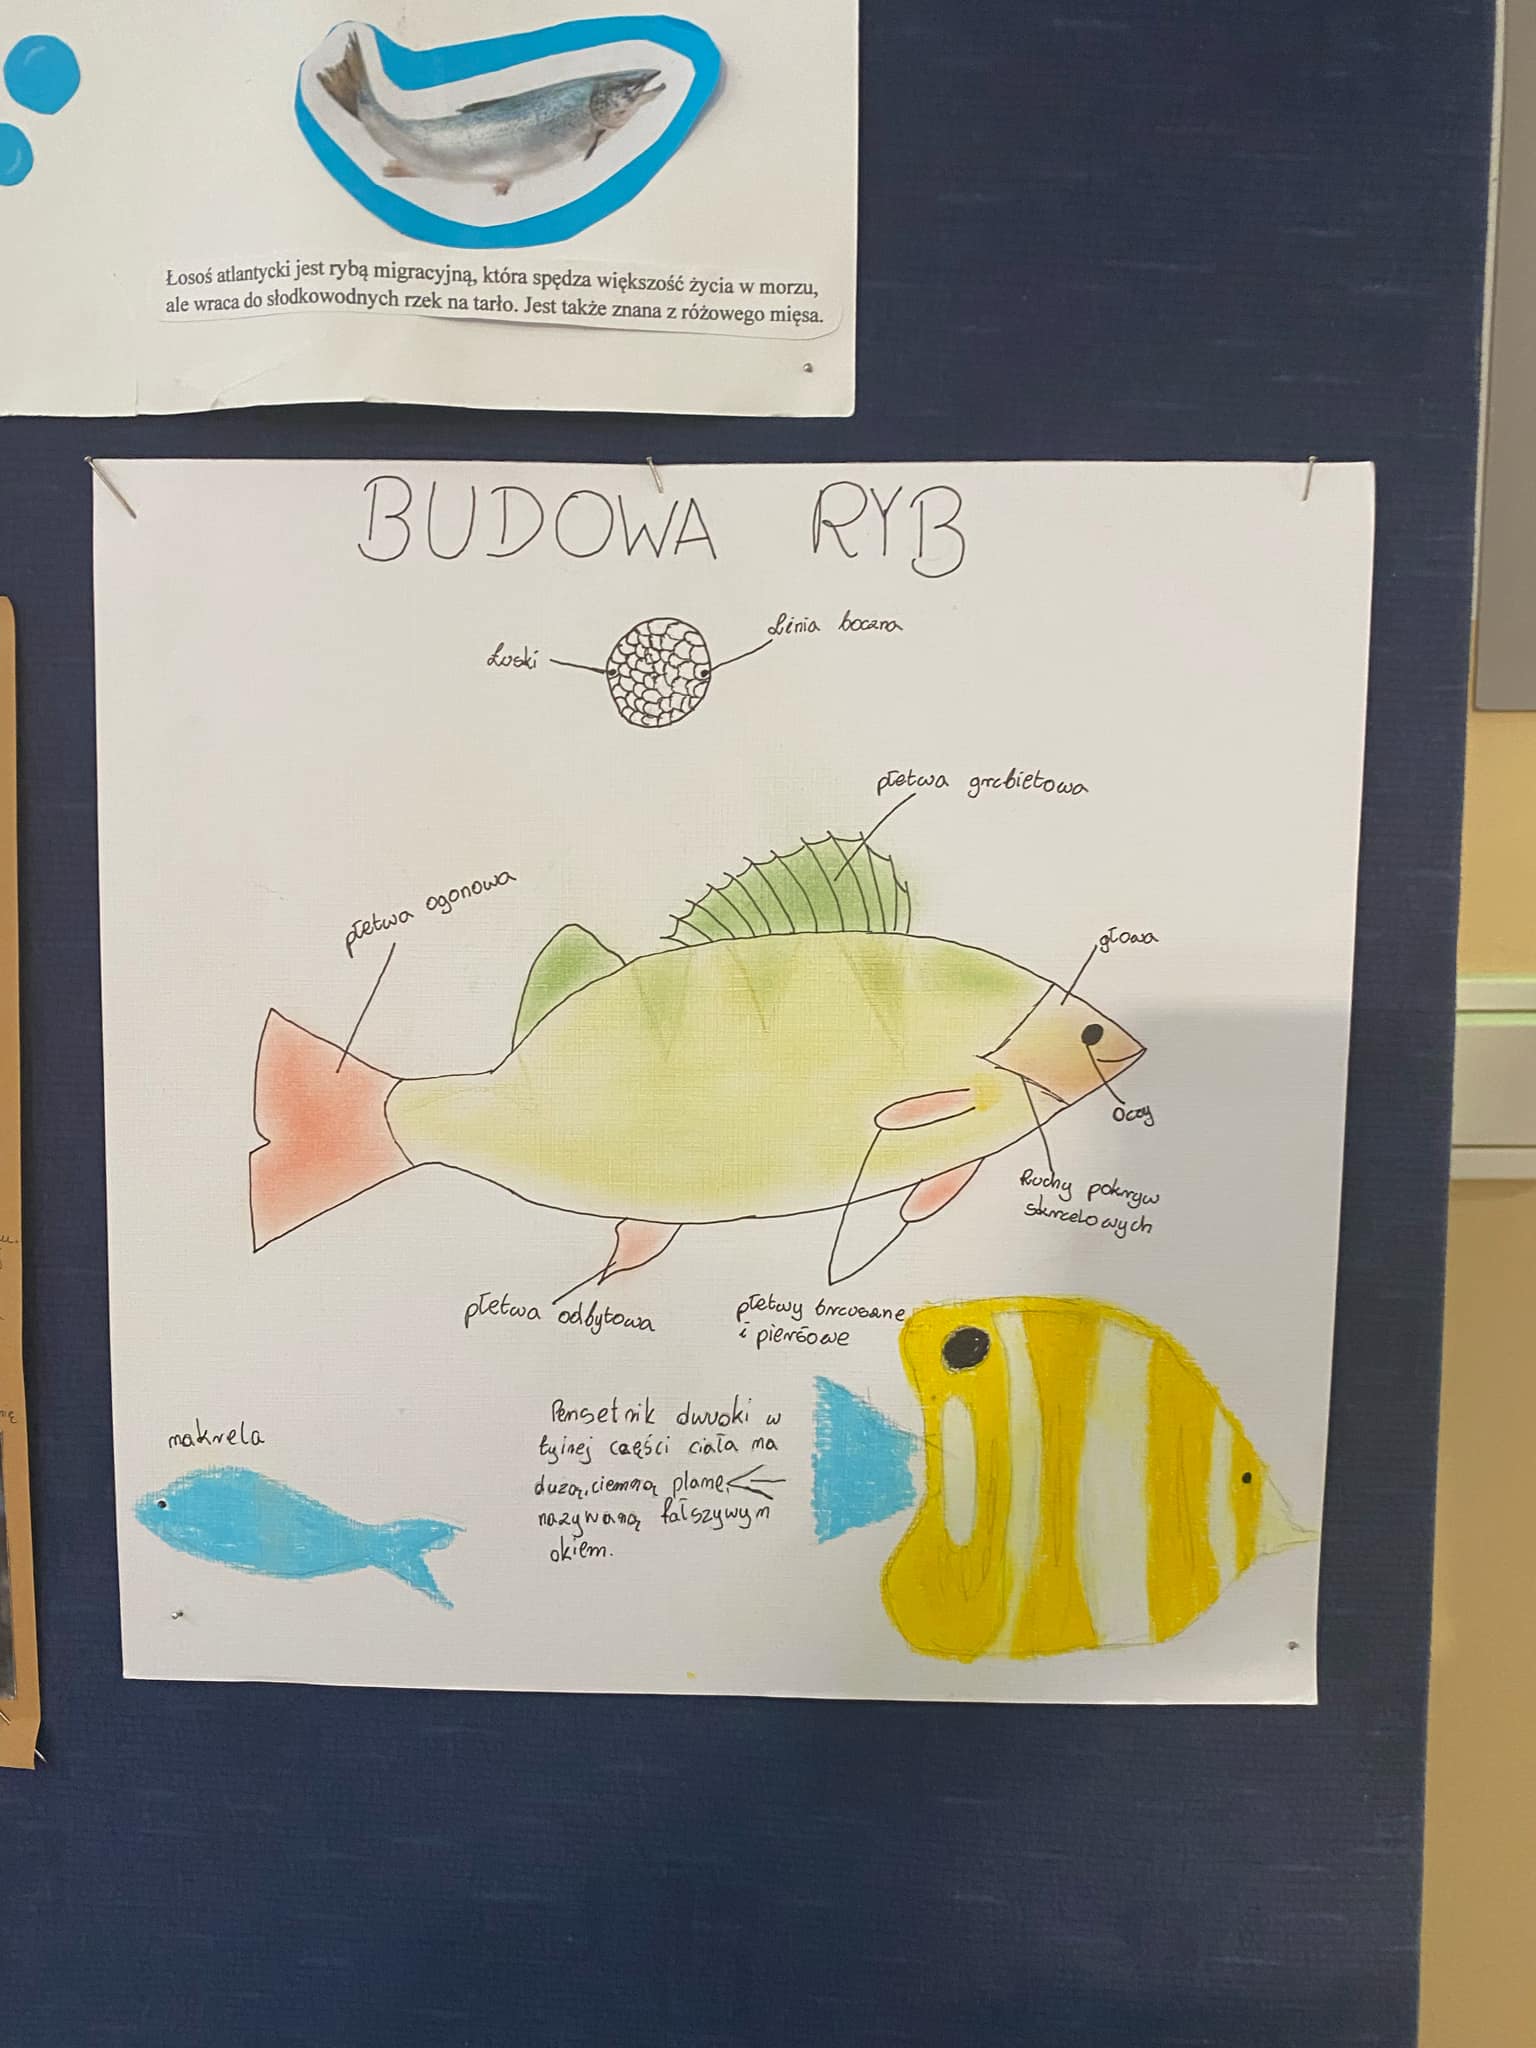 Łosoś atlantycki jest rybą migracyjną, która spędza większość życia w morzu,
ale wraca do słodkowodnych rzek na tarło. Jest także znana z różowego mięsa.
BUDOWA RYB
Linia boczna
Łuski
płetwa grzbietowa
płetwa ogonowa
głowa
Oczy
Ruchy pokryw
skrzelowych
płetwa odbytowa
płetwy brzuszne
i piersiowe
makrela
Pensetnik dwuoki w
tylnej części ciała ma
dużą, ciemną plamę,
nazywaną fałszywym
okiem.